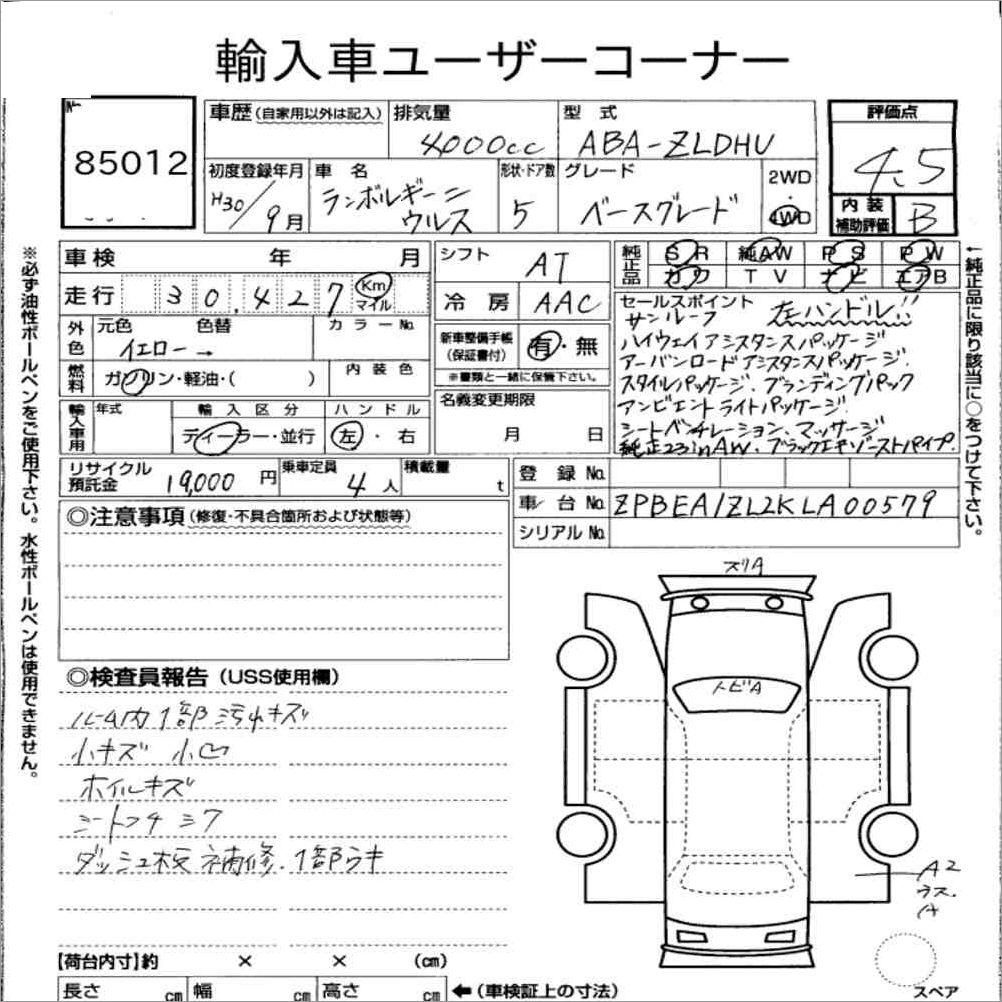 輸入車ユーザーコーナー
85012
車歴 (自家用以外は記入) 排気量 型式 評価点
4000cc ABA-ZLDHU 4.5
初度登録年月 車名 形状・ドア数 グレード 2WD・4WD
H30/9月 ランボルギーニ ウルス 5 ベースグレード
内装補助評価 B
車検 年 月 シフト AT
走行 30,427 Km マイル 冷房 AAC
純正品 SR 純AW PS PW
カワ TV ナビ エアB
外色 元色 色替 カラーNo.
イエロー →
新車整備手帳(保証書付) 有・無
※書類と一緒に保管下さい。
燃料 ガソリン・軽油・( ) 内装色
名義変更期限 月 日
輸入車用 年式 輸入区分 ハンドル
ディーラー・並行 左・右
セールスポイント
サンルーフ 左ハンドル!!
ハイウェイアシスタンスパッケージ
アーバンロードアシスタンスパッケージ.
スタイルパッケージ. ブランディングパック
アンビエントライトパッケージ.
シートベンチレーション. マッサージ
純正23inAW. ブラックエキゾーストパイプ.
リサイクル預託金 19,000円 乗車定員 4人 積載量 t
登録No.
車台No. ZPBEA1ZL2KLA00579
シリアルNo.
◎注意事項 (修復・不具合箇所および状態等)
◎検査員報告 (USS使用欄)
ルーム内1部汚れキズ
小キズ 小凹
ホイルキズ
シートスチ シワ
ダッシュ板補修. 1部ウキ
スリA
トビA
A2
ウス.
【荷台内寸】約 × × (cm)
長さ cm 幅 cm 高さ cm ←(車検証上の寸法)
スペア
※必ず油性ボールペンをご使用下さい。水性ボールペンは使用できません。
←純正品に限り該当に○をつけて下さい。